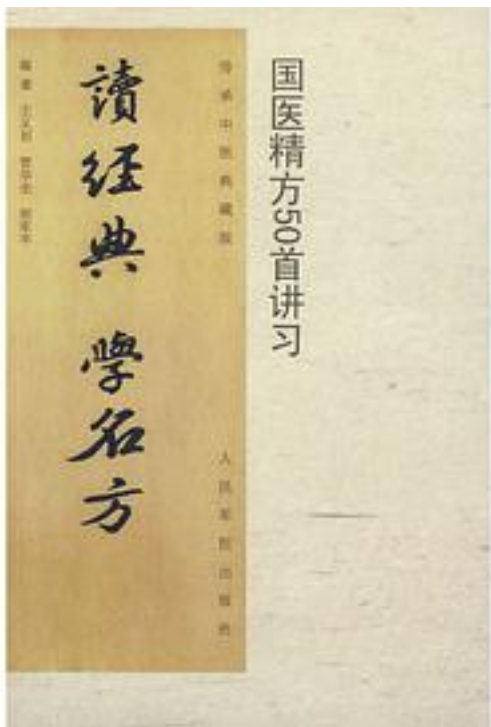 国医精方50首讲习
传承中医典藏版
人民军医出版社
讀經典 學名方
编著